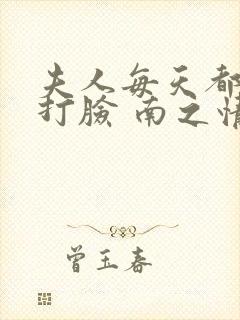 夫人每天都
打臉 南之情
曾玉春